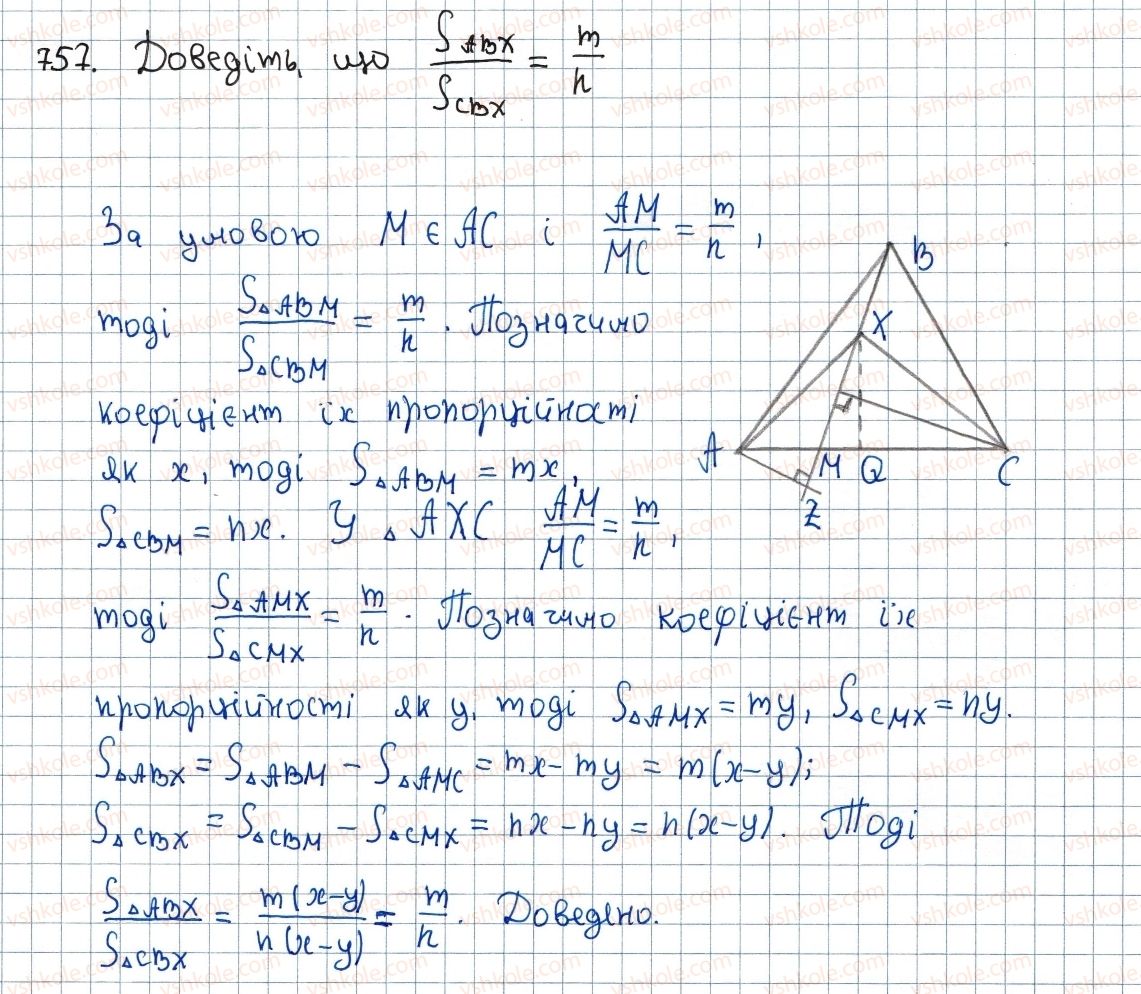 757. Доведіть, що S ABX / S CBX = m/n
За умовою M ∈ AC і AM/MC = m/n,
тоді S△ABM / S△CBM = m/n. Позначимо
коефіцієнт їх пропорційності
як x, тоді S△ABM = mx,
S△CBM = nx. У △AXC AM/MC = m/n,
тоді S△AMX / S△CMX = m/n. Позначимо коефіцієнт їх
пропорційності як y, тоді S△AMX = my, S△CMX = ny.
S△ABX = S△ABM - S△AMC = mx - my = m(x-y);
S△CBX = S△CBM - S△CMX = nx - ny = n(x-y). Тоді
S△ABX / S△CBX = m(x-y) / n(x-y) = m/n. Доведено.
B
X
A
M
Q
C
Z
vshkole.com